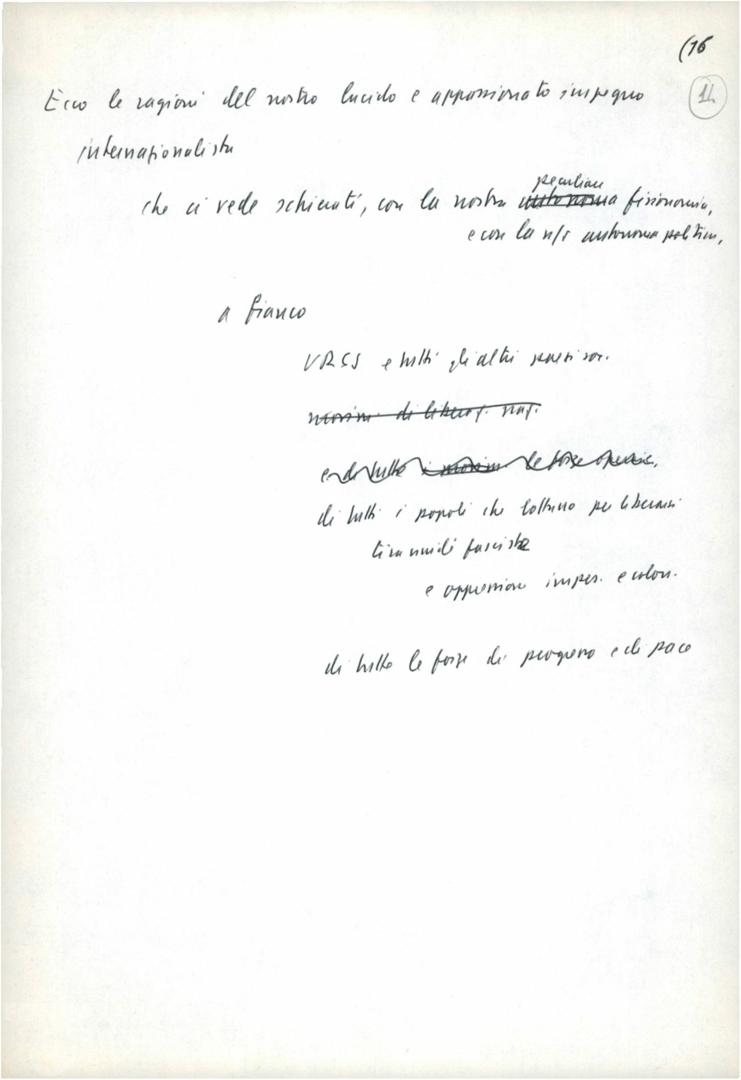 (16
14
Ecco le ragioni del nostro lucido e appassionato impegno
internazionalista
peculiare
che ci vede schierati, con la nostra autonoma fisionomia,
e con la n/s autonomia politica,
a fianco
URSS e tutti gli altri paesi soc.
movim. di liberaz. naz.
e di tutte i movim. le forze operaie,
di tutti i popoli che lottano per liberarsi
tirannidi fasciste
e oppressione imper. e colon.
di tutte le forze di progresso e di pace